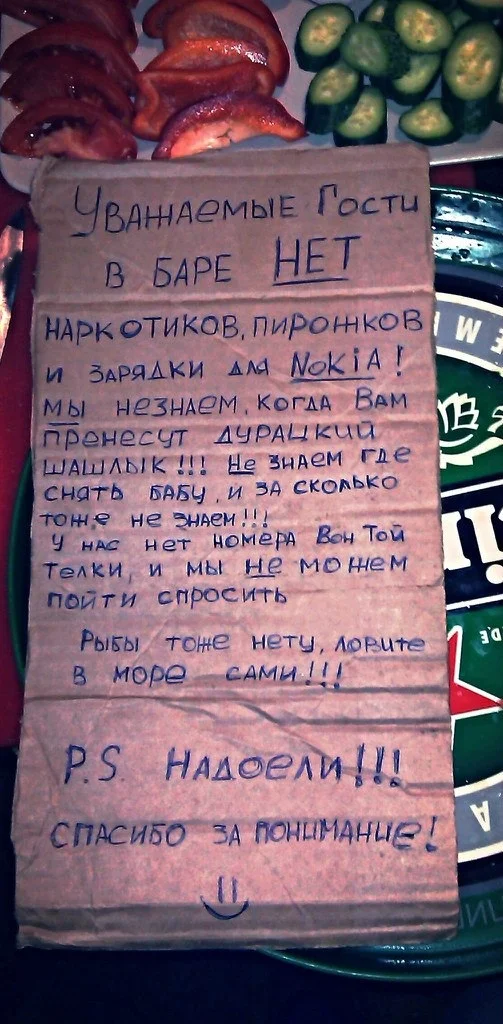 Уважаемые Гости
в баре НЕТ
наркотиков, пирожков
и зарядки для NokiA!
мы незнаем, когда Вам
пренесут дурацкий
шашлык!!! Не знаем где
снять бабу, и за сколько
тоже не знаем!!!
У нас нет номера Вон Той
телки, и мы не можем
пойти спросить
Рыбы тоже нету, ловите
в море сами!!!
P.S Надоели!!!
спасибо за понимание!